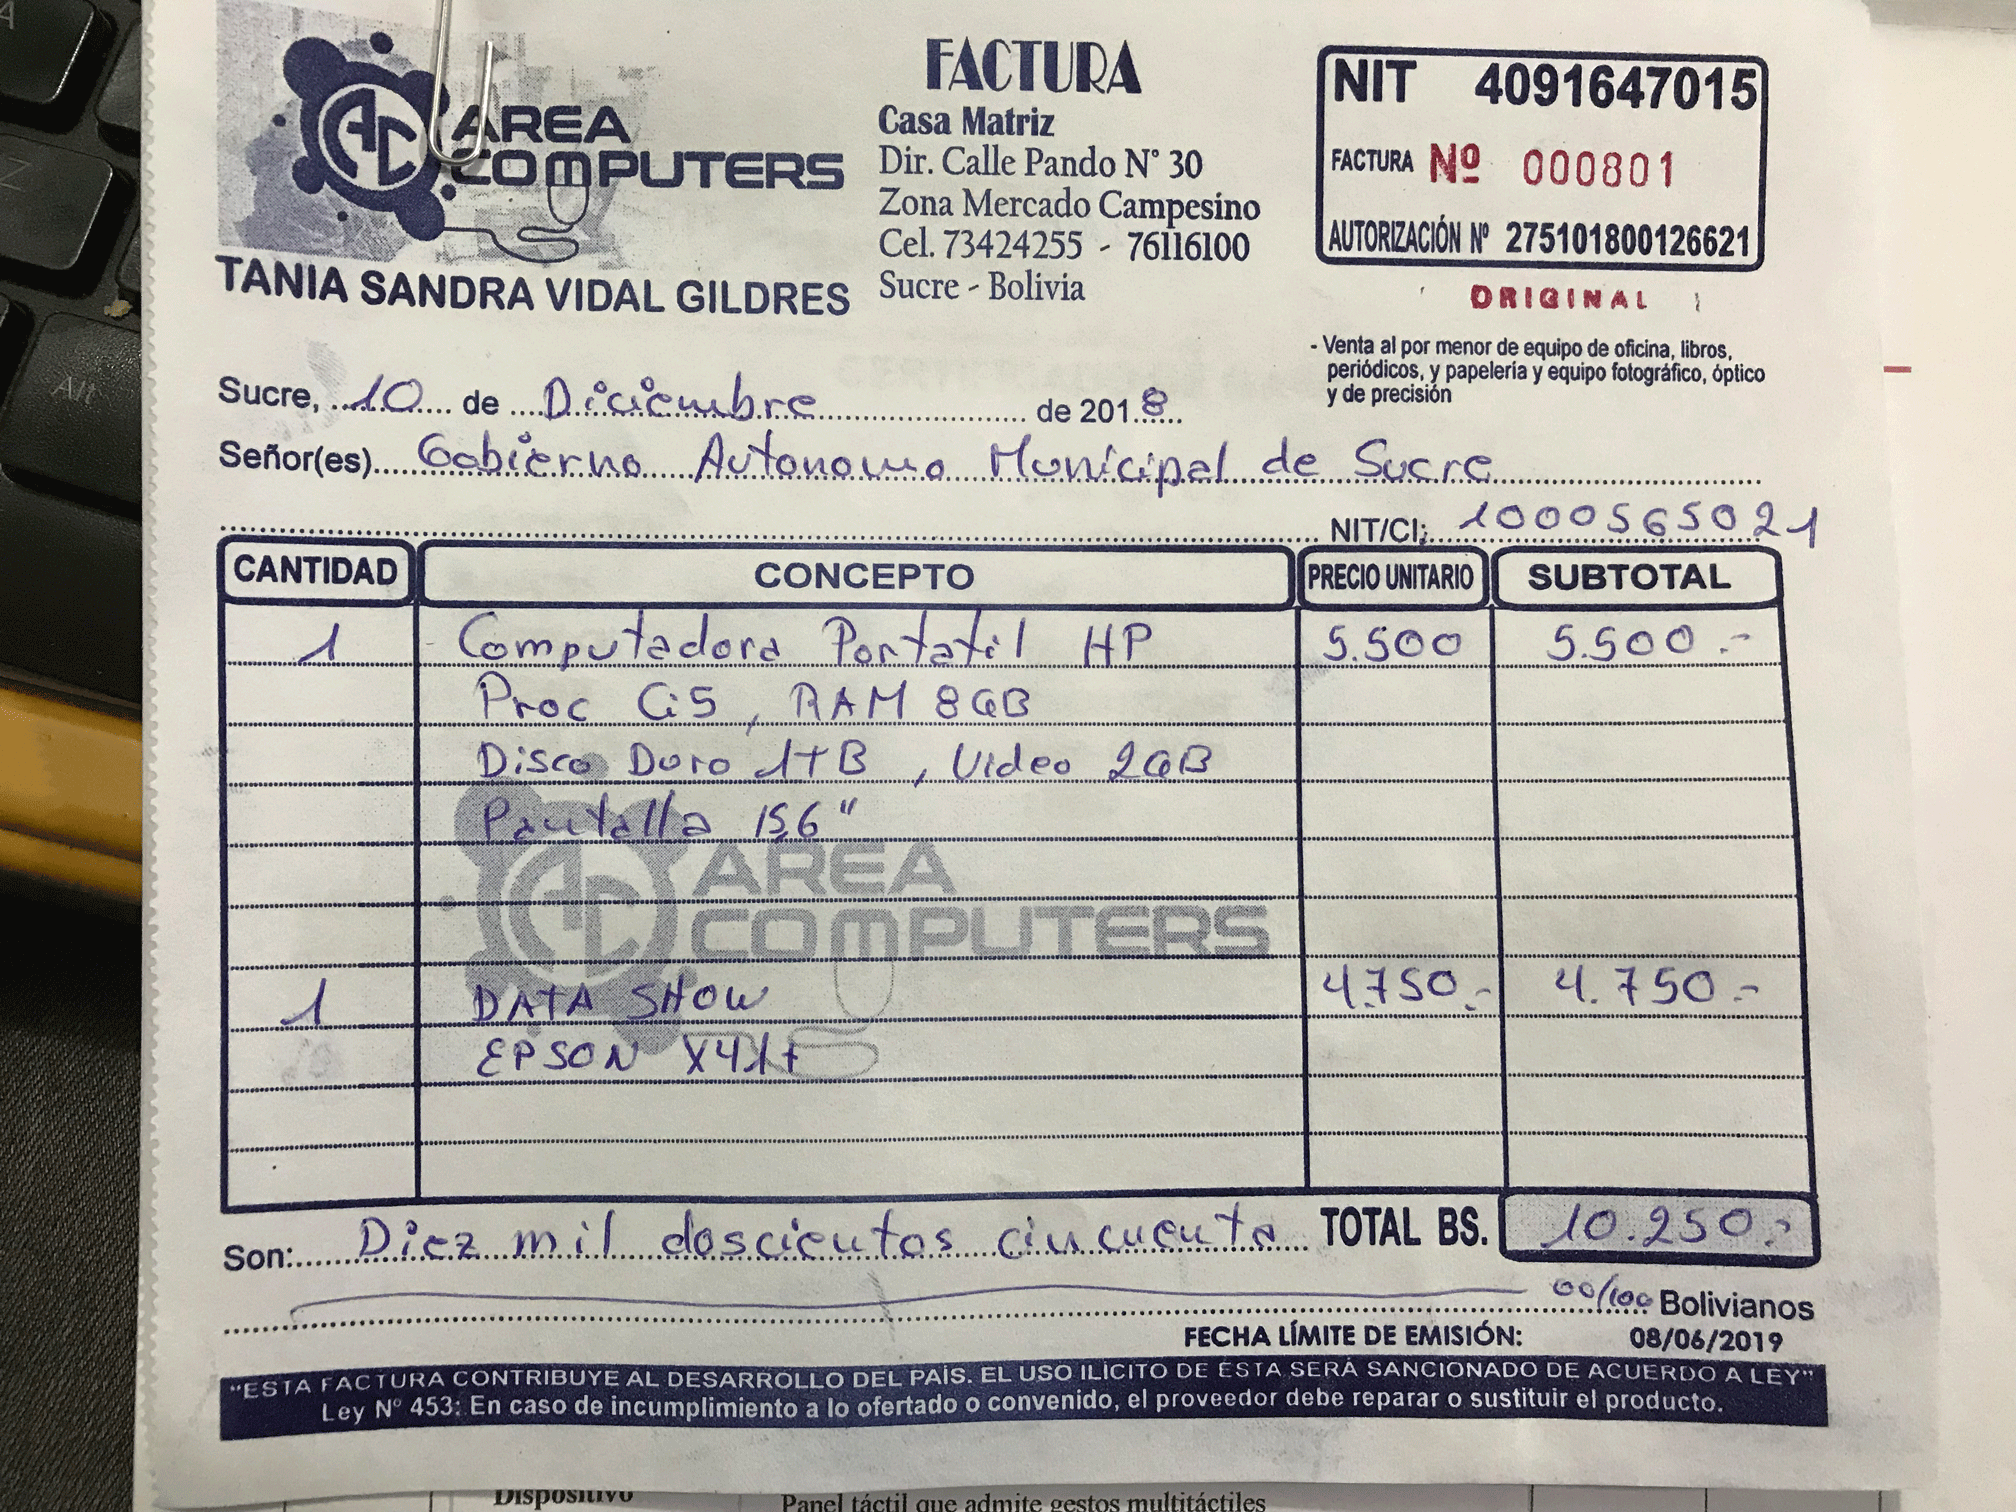 AREA
COMPUTERS
TANIA SANDRA VIDAL GILDRES
FACTURA
Casa Matriz
Dir. Calle Pando N° 30
Zona Mercado Campesino
Cel. 73424255 - 76116100
Sucre - Bolivia
NIT 4091647015
FACTURA Nº 000801
AUTORIZACIÓN Nº 275101800126621
ORIGINAL
- Venta al por menor de equipo de oficina, libros,
periódicos, y papelería y equipo fotográfico, óptico
y de precisión
Sucre, 10 de Diciembre de 2018
Señor(es) Gobierno Autonomo Municipal de Sucre
NIT/CI: 1000565021
CANTIDAD CONCEPTO PRECIO UNITARIO SUBTOTAL
1 Computadora Portatil HP 5.500 5.500.-
Proc Ci5, RAM 8GB
Disco Duro 1TB, Video 2GB
Pantalla 15,6"
AREA
COMPUTERS
1 DATA SHOW 4.750.- 4.750.-
EPSON X41+
Son: Diez mil doscientos cincuenta TOTAL BS. 10.250.-
00/100 Bolivianos
FECHA LÍMITE DE EMISIÓN: 08/06/2019
"ESTA FACTURA CONTRIBUYE AL DESARROLLO DEL PAÍS. EL USO ILÍCITO DE ESTA SERÁ SANCIONADO DE ACUERDO A LEY"
Ley Nº 453: En caso de incumplimiento a lo ofertado o convenido, el proveedor debe reparar o sustituir el producto.
Dispositivo Panel táctil que admite gestos multitáctiles
A
Z
Alt